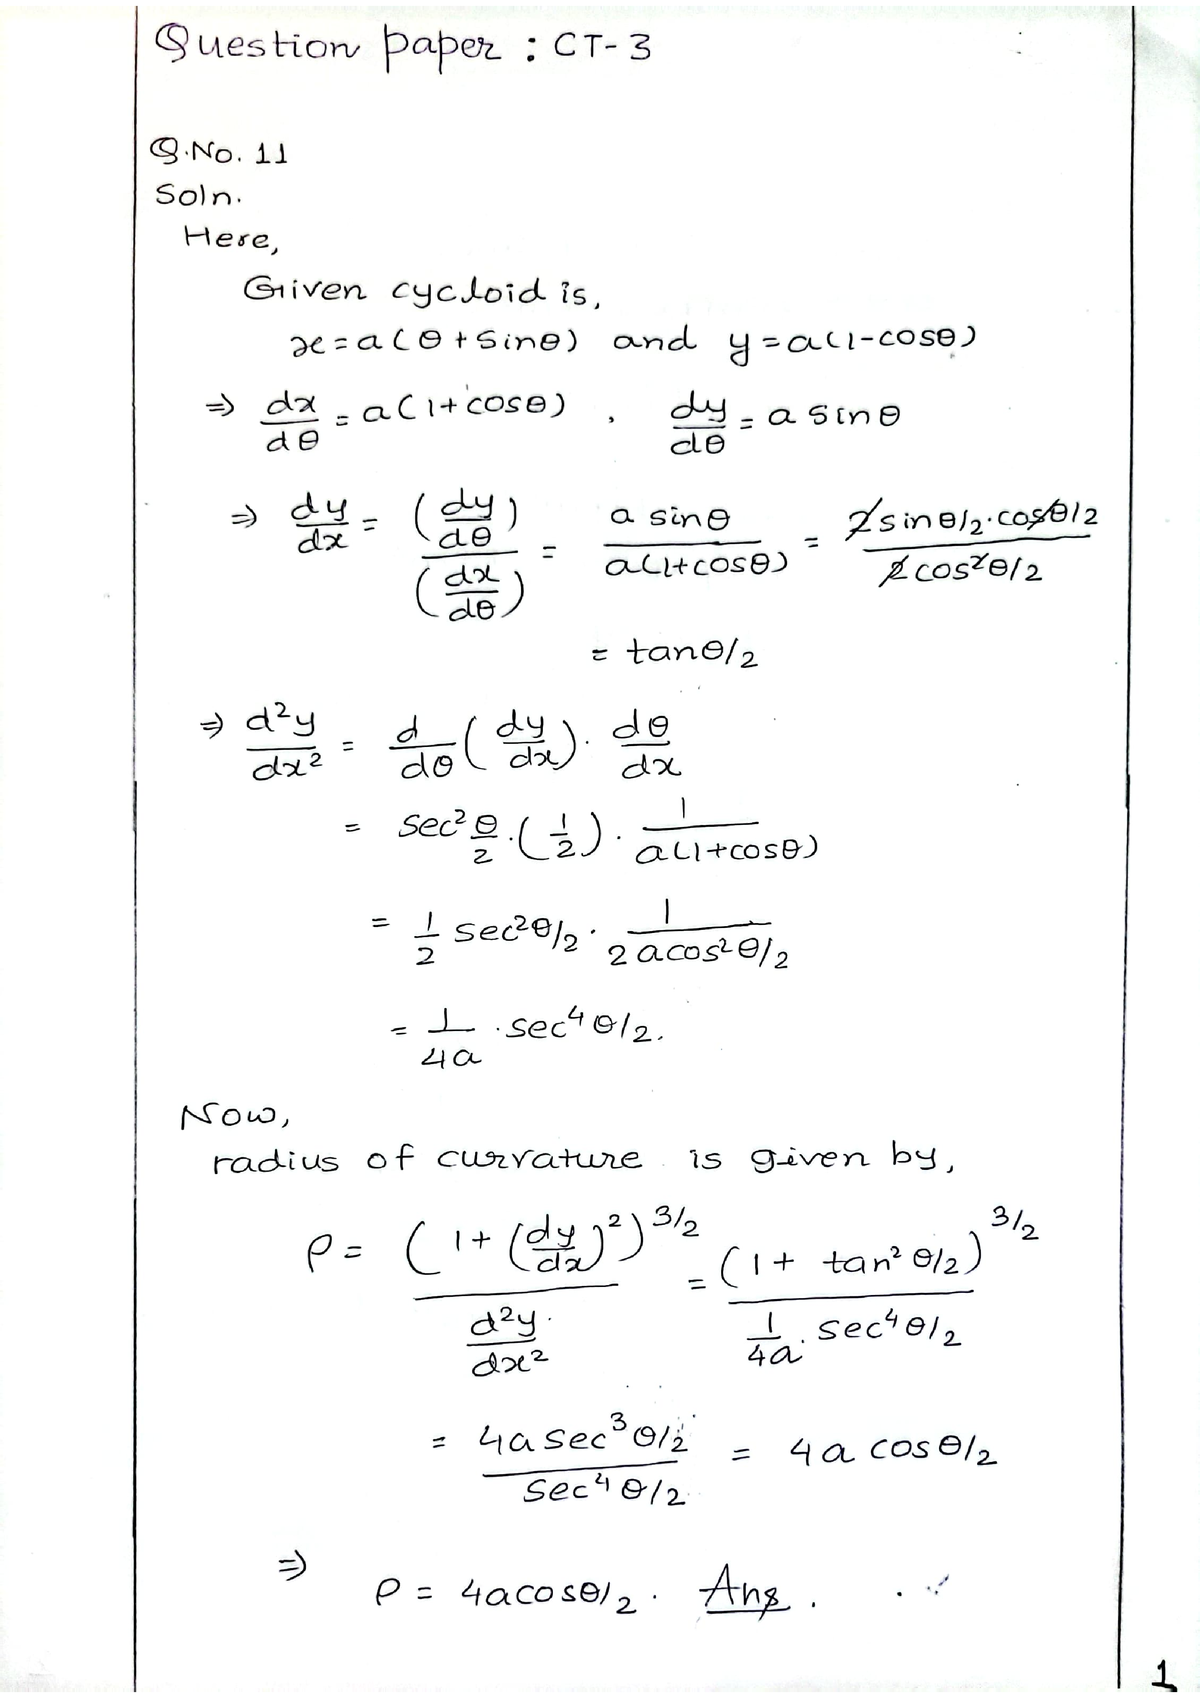 Question paper : CT-3
Q.No. 11
Soln.
Here,
Given cycloid is,
x = a(θ + sinθ) and y = a(1-cosθ)
⇒ dx/dθ = a(1+cosθ) , dy/dθ = a sinθ
⇒ dy/dx = (dy/dθ)/(dx/dθ) = a sinθ / a(1+cosθ) = 2sinθ/2.cosθ/2 / 2cos²θ/2
= tanθ/2
⇒ d²y/dx² = d/dθ (dy/dx). dθ/dx
= sec² θ/2 .(1/2). 1/a(1+cosθ)
= 1/2 sec²θ/2 . 1/2acos²θ/2
= 1/4a . sec⁴θ/2.
Now,
radius of curvature is given by,
ρ = (1+(dy/dx)²)^3/2 / d²y/dx² = (1+ tan²θ/2)^3/2 / 1/4a . sec⁴θ/2
= 4a sec³θ/2 / sec⁴θ/2 = 4a cosθ/2
⇒
ρ = 4acosθ/2 . Ans .
1